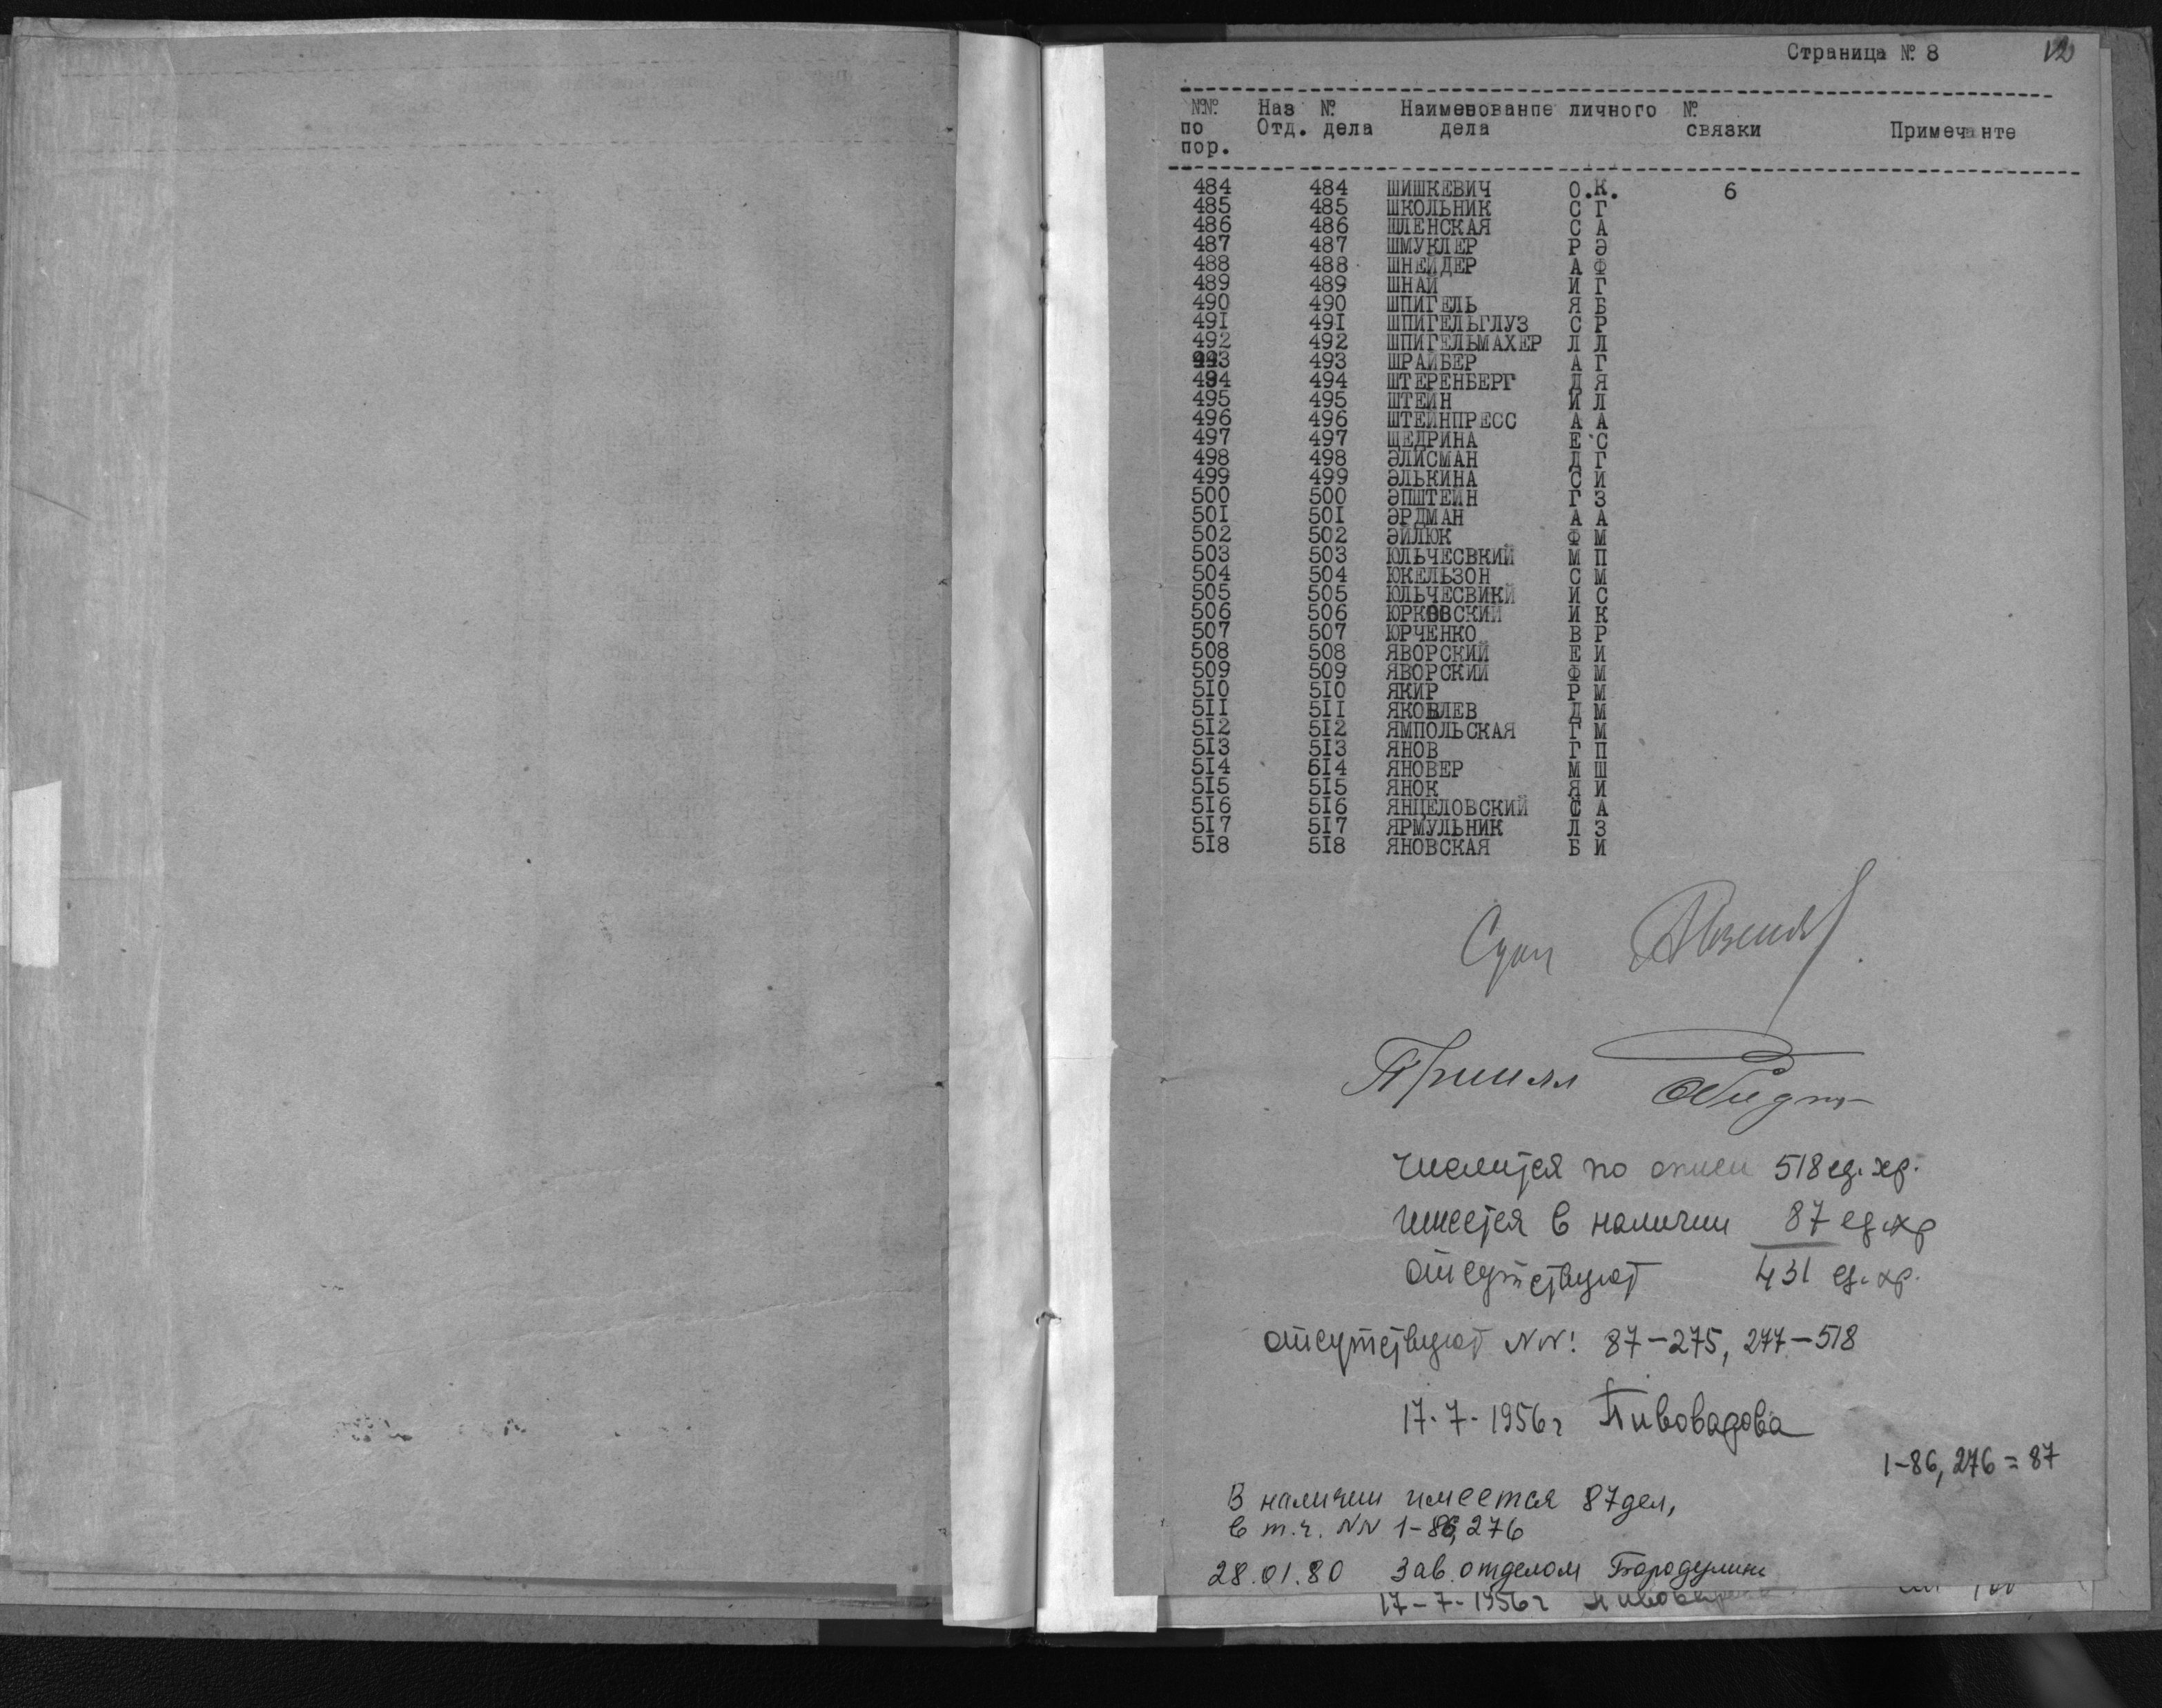 Страница № 8 12
№№ Наз № Наименованпе личного №
по Отд. дела дела связки Примечанте
пор.
484 484 ШИШКЕВИЧ О.К. 6
485 485 ШКОЛЬНИК С Г
486 486 ШЛЕНСКАЯ С А
487 487 ШМУКЛЕР Р Э
488 488 ШНЕЙДЕР А Ф
489 489 ШНАЙ И Г
490 490 ШПИГЕЛЬ Я Б
491 491 ШПИГЕЛЬГЛУЗ С Р
492 492 ШПИГЕЛЬМАХЕР Л Л
493 493 ШРАЙБЕР А Г
494 494 ШТЕРЕНБЕРГ Д Я
495 495 ШТЕЙН И Л
496 496 ШТЕЙНПРЕСС А А
497 497 ЩЕДРИНА Е С
498 498 ЭЛИСМАН Д Г
499 499 ЭЛЬКИНА С И
500 500 ЭПШТЕЙН Г З
501 501 ЭРДМАН А А
502 502 ЭЙЛЮК Ф М
503 503 ЮЛЬЧЕСВКИЙ М П
504 504 ЮКЕЛЬЗОН С М
505 505 ЮЛЬЧЕСВИКЙ И С
506 506 ЮРКОВСКИЙ И К
507 507 ЮРЧЕНКО В Р
508 508 ЯВОРСКИЙ Е И
509 509 ЯВОРСКИЙ Ф М
510 510 ЯКИР Р М
511 511 ЯКОВЛЕВ Д М
512 512 ЯМПОЛЬСКАЯ Г М
513 513 ЯНОВ Г П
514 514 ЯНОВЕР М Ш
515 515 ЯНОК Я И
516 516 ЯНЦЕЛОВСКИЙ С А
517 517 ЯРМУЛЬНИК Л З
518 518 ЯНОВСКАЯ Б И
Сдал
Принял
числится по описи 518 ед. хр.
имеется в наличии 87 ед. хр
отсутствуют 431 ед. хр.
отсутствуют NN: 87-275, 277-518
17-7-1956 г Пивоварова
1-86, 276 = 87
В наличии имеется 87 дел,
в т.ч. NN 1-86, 276
28.01.80 Зав. отделом Бородулина
17-7-1956 г